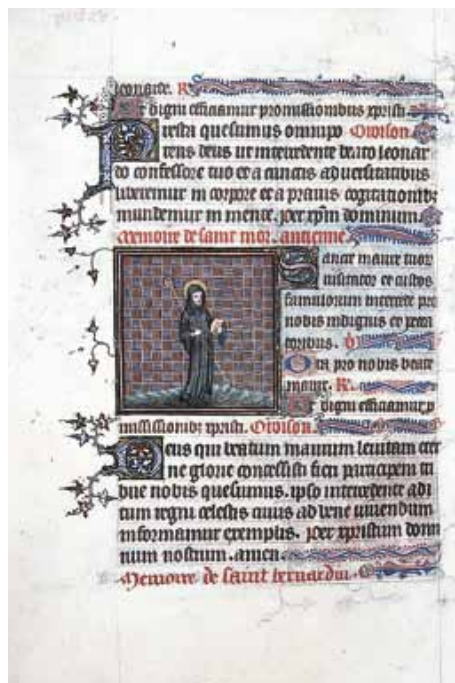 leonarde. R.
Et digni efficiamur promissionibus xpristi.
Presta quesumus omnipo Oroison.
tens deus ut intercedente beato leonar
do confessore tuo et a cunctis adversitatibus
liberemur in corpore et a pravis cogitationibz
mundemur in mente. per xpm dominum.
memoire de saint mor. antienne.
Sancte maure tuor
visitator et custos
famulorum intercede pro
nobis indignis et pecca
toribus. v
Ora pro nobis beate
maure. R.
Et digni efficiamur p
missionibz xpristi. Oroison.
Deus qui beatum maurum levitam eter
ne glorie concessisti fieri participem tri
bue nobis quesumus. ipso intercedente adi
tum regni celestis cuius ad bene vivendum
informamur exemplis. per xpristum domi
num nostrum. amen.
Memoire de saint bernardin.